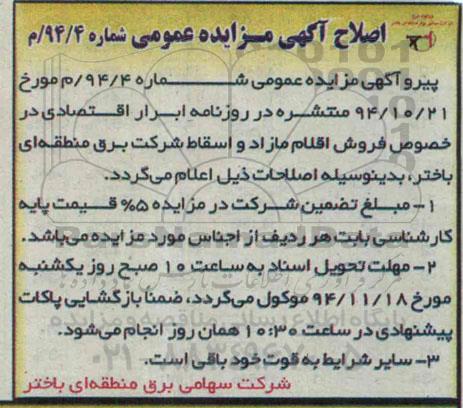 اصلاح آگهی مزایده عمومی شماره ۹۴/۴/م
پیرو آگهی مزایده عمومی شماره ۹۴/۴/م مورخ
۹۴/۱۰/۲۱ منتشره در روزنامه ابرار اقتصادی در
خصوص فروش اقلام مازاد و اسقاط شرکت برق منطقه‌ای
باختر، بدینوسیله اصلاحات ذیل اعلام می‌گردد.
۱- مبلغ تضمین شرکت در مزایده ۵% قیمت پایه
کارشناسی بابت هر ردیف از اجناس مورد مزایده می‌باشد.
۲- مهلت تحویل اسناد به ساعت ۱۰ صبح روز یکشنبه
مورخ ۹۴/۱۱/۱۸ موکول می‌گردد، ضمنا بازگشایی پاکات
پیشنهادی در ساعت ۱۰:۳۰ همان روز انجام می‌شود.
۳- سایر شرایط به قوت خود باقی است.
شرکت سهامی برق منطقه‌ای باختر